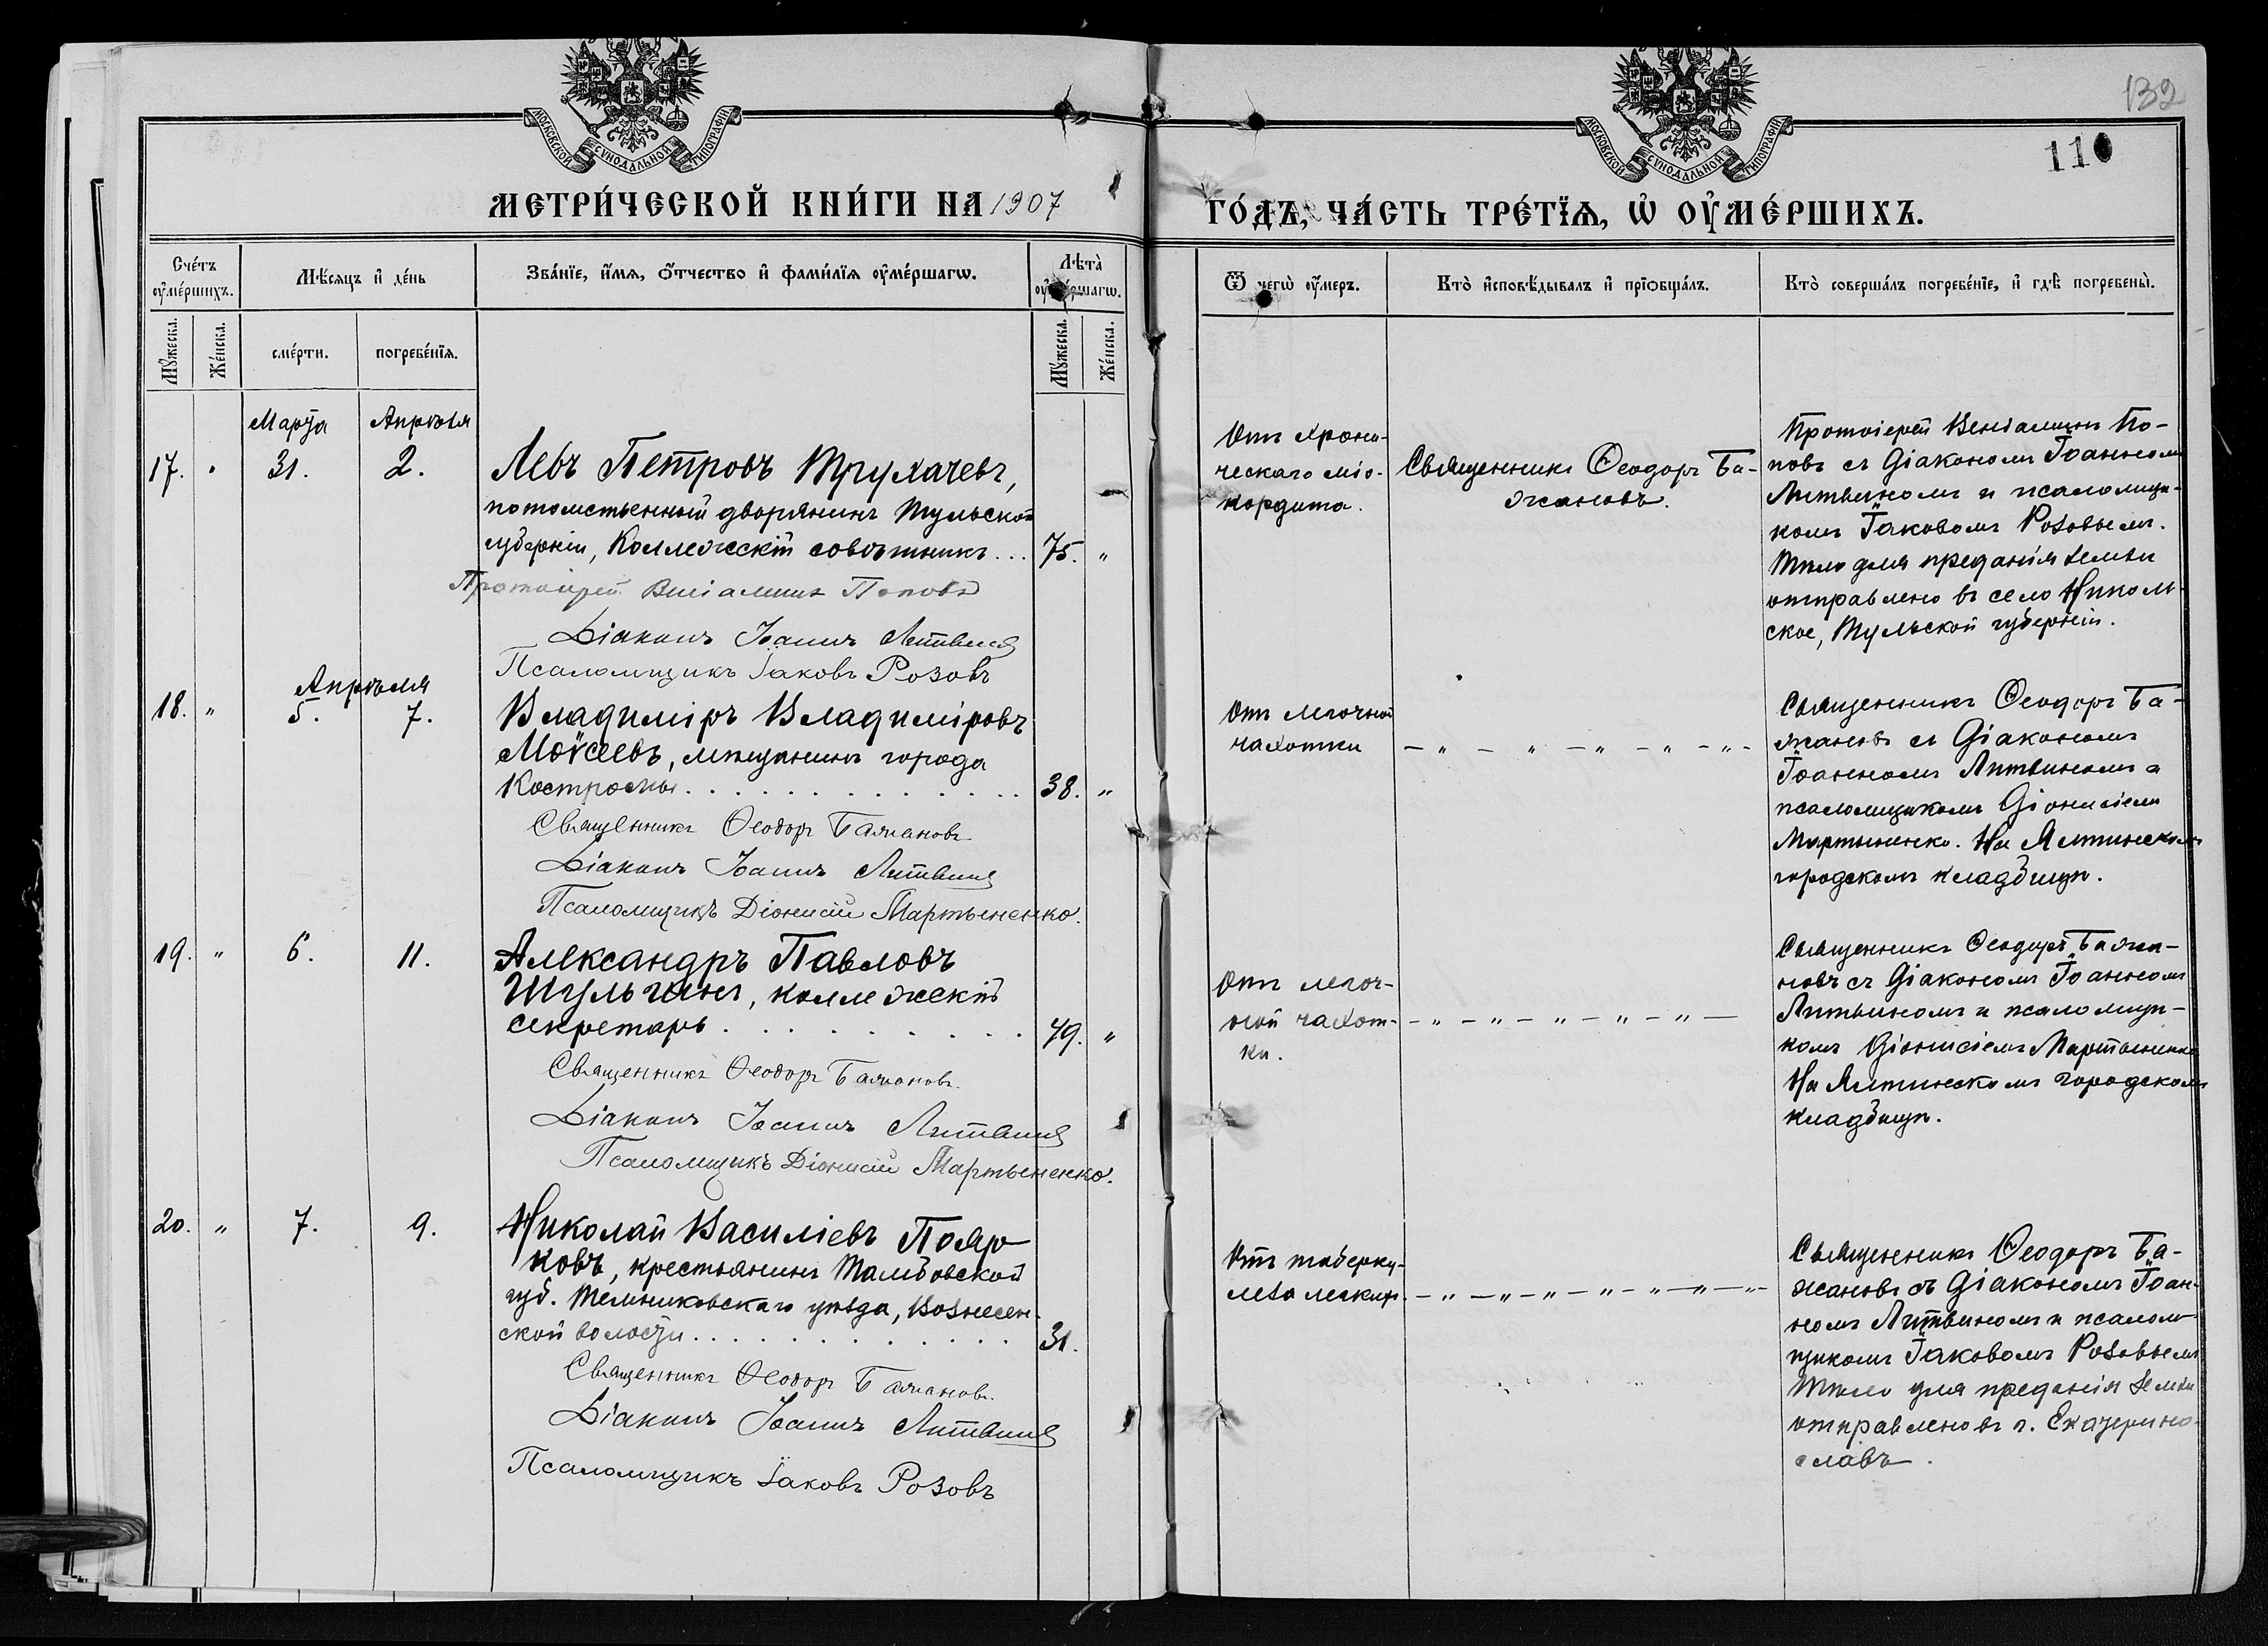 132
110
МОСКОВСКОЙ СѴНОДАЛЬНОЙ ТИПОГРАФІИ
МОСКОВСКОЙ СѴНОДАЛЬНОЙ ТИПОГРАФІИ
МЕТРИ́ЧЕСКОЙ КНИ́ГИ НА 1907 ГО́ДЪ, ЧА́СТЬ ТРЕ́ТЇѦ, Ѡ҆ ОУ҆МЕ́РШИХЪ.
Сче́тъ оу҆ме́ршихъ.
Мѣ́сяцъ и҆ де́нь
Зва́нїе, и҆́мѧ, ѻ҆́тчество и҆ фами́лїѧ оу҆ме́ршагѡ.
Лѣ́та оу҆ме́ршагѡ.
Ѿ чегѡ̀ оу҆́меръ.
Кто̀ и҆сповѣ́дывалъ и҆ прїѻбща́лъ.
Кто̀ соверша́лъ погребе́нїе, и҆ гдѣ̀ погребены̀.
Мꙋ́жеска. Же́нска. сме́рти. погребе́нїѧ. Мꙋ́жеска. Же́нска.
Марта Апрѣля
17. " 31. 2.
Левъ Петровъ Трухачевъ,
потомственный дворянинъ Тульской
губерніи, Коллежскій совѣтникъ... 75. "
Протоіерей Веніаминъ Поповъ
Діаконъ Іоаннъ Литвинъ
Псаломщикъ Іаковъ Розовъ
Отъ хрони-
ческаго міо-
кардита.
Священникъ Ѳеодоръ Ба-
жановъ.
Протоіерей Веніаминъ По-
повъ съ Діакономъ Іоанномъ
Литвиномъ и псаломщи-
комъ Іаковомъ Розовымъ.
Тѣло для преданія землѣ
отправлено въ село Николь-
ское, Тульской губерніи.
Апрѣля
18. " 5. 7.
Владиміръ Владиміровъ
Моѵсеевъ, мѣщанинъ города
Костромы. . . . . . . . . . . . . 38. "
Священникъ Ѳеодоръ Бажановъ
Діаконъ Іоаннъ Литвинъ
Псаломщикъ Діонисій Мартыненко.
Отъ легочной
чахотки
— " — " — " — " — " —
Священникъ Ѳеодоръ Ба-
жановъ съ Діакономъ
Іоанномъ Литвиномъ и
псаломщикомъ Діонисіемъ
Мартыненко. На Ялтинскомъ
городскомъ кладбищѣ.
19. " 6. 11.
Александръ Павловъ
Шульгинъ, коллежскій
секретарь. . . . . . . . . 49. "
Священникъ Ѳеодоръ Бажановъ.
Діаконъ Іоаннъ Литвинъ
Псаломщикъ Діонисій Мартыненко.
Отъ легоч-
ной чахот-
ки.
— " — " — " — " — " —
Священникъ Ѳеодоръ Бажа-
новъ съ Діакономъ Іоанномъ
Литвиномъ и псаломщи-
комъ Діонисіемъ Мартыненко
На Ялтинскомъ городскомъ
кладбищѣ.
20. " 7. 9.
Николай Василіевъ Пояр-
ковъ, крестьянинъ Тамбовской
губ. Темниковскаго уѣзда, Вознесен-
ской волости. . . . . . . . . . . . 31.
Священникъ Ѳеодоръ Бажановъ.
Діаконъ Іоаннъ Литвинъ
Псаломщикъ Іаковъ Розовъ
Отъ туберку-
леза легкихъ.
— " — " — " — " — " — " —
Священникъ Ѳеодоръ Ба-
жановъ съ Діакономъ Іоан-
номъ Литвиномъ и псалом-
щикомъ Іаковомъ Розовымъ
Тѣло для преданія землѣ
отправлено въ г. Екатерино-
славъ.